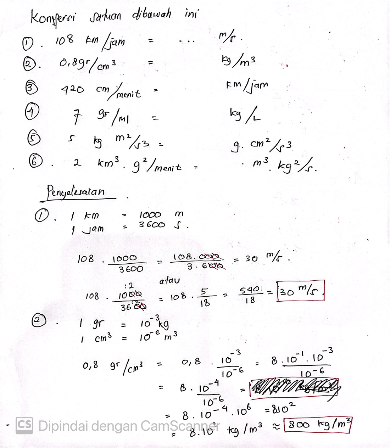 Konversi satuan dibawah ini
① . 108 km/jam = ... m/s.
② . 0,8 gr/cm³ = kg/m³
③ 420 cm/menit = km/jam
④ 7 gr/ml = kg/L
⑤ 5 kg m²/s³ = g. cm²/s³
⑥ . 2 km³ . g²/menit = m³. kg²/s.
Penyelesaian
① . 1 km = 1000 m
1 jam = 3600 s.
108 . 1000/3600 = 108.000/3.600 = 30 m/s.
atau
108 . 1000/3600 :2 = 108 . 5/18 = 540/18 = 30 m/s
② . 1 gr = 10⁻³ kg
1 cm³ = 10⁻⁶ m³
0,8 gr/cm³ = 0,8 . 10⁻³/10⁻⁶ = 8 . 10⁻¹ . 10⁻³/10⁻⁶
= 8 . 10⁻⁴/10⁻⁶ =
= 8 . 10⁻⁴ . 10⁶ = 8.10²
= 8.10² kg/m³ ≈ 800 kg/m³
CS Dipindai dengan CamScanner